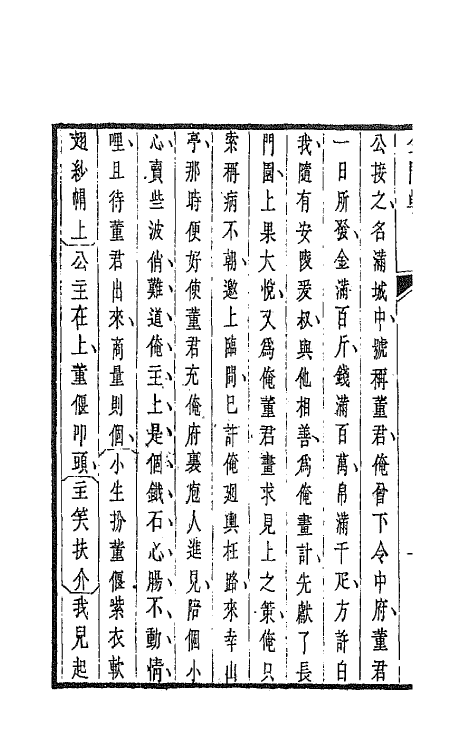 公接之名滿城中號稱董君俺曾下令中府董君
一日所發金滿百斤錢滿百萬帛滿千疋方許白
我隨有安陵爰叔與他相善爲俺畫計先獻了長
門園上果大悅又爲俺董君畫求見上之策俺只
索稱病不朝邀上臨問已許俺廻輿枉路來幸山
亭那時便好使董君充俺府裏庖人進見陪個小
心賣些波俏難道俺主上是個鐵石心腸不動情
哩且待董君出來商量則個小生扮董偃紫衣軟
翅紗帽上公主在上董偃叩頭主笑扶介我兒起